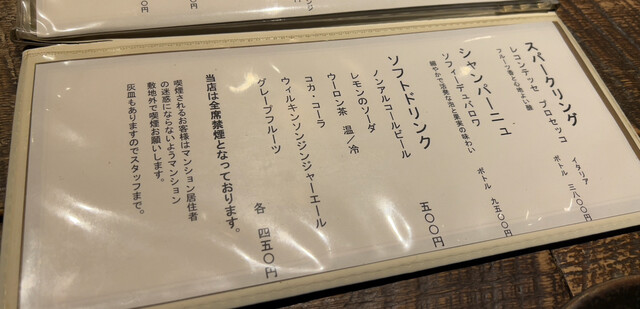 スパークリング
レコンテッセ プロセッコ イタリア
フルーツ香と心地よい酸 ボトル 三八〇〇円
シャンパーニュ
ソフィーデュバロワ
穏やかで活発な泡と果実の味わい ボトル 九五〇〇円
ソフトドリンク
ノンアルコールビール 五〇〇円
レモンのソーダ
ウーロン茶 温/冷
コカ・コーラ
ウィルキンソンジンジャーエール
グレープフルーツ 各 四五〇円
当店は全席禁煙となっております。
喫煙されるお客様はマンション居住者
の迷惑にならないようマンション
敷地外で喫煙お願いします。
灰皿もありますのでスタッフまで。